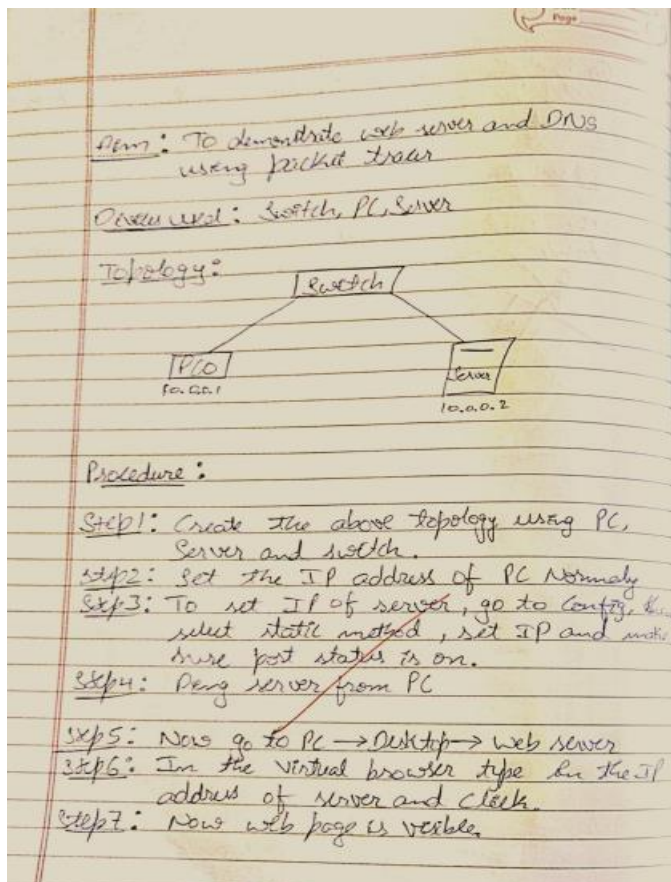 Page
Aim: To demonstrate web server and DNS
using packet tracer
Devices used: Switch, PC, Server
Topology:
Switch
PC0
Server
10.0.0.1
10.0.0.2
Procedure:
Step1: Create the above topology using PC,
Server and switch.
Step2: Set the IP address of PC Normaly
Step3: To set IP of server, go to Config,
select static method, set IP and make
sure port status is on.
Step4: Ping server from PC
Step5: Now go to PC → Desktop → Web server
Step6: In the virtual browser type in the IP
address of server and click.
Step7: Now web page is visible.